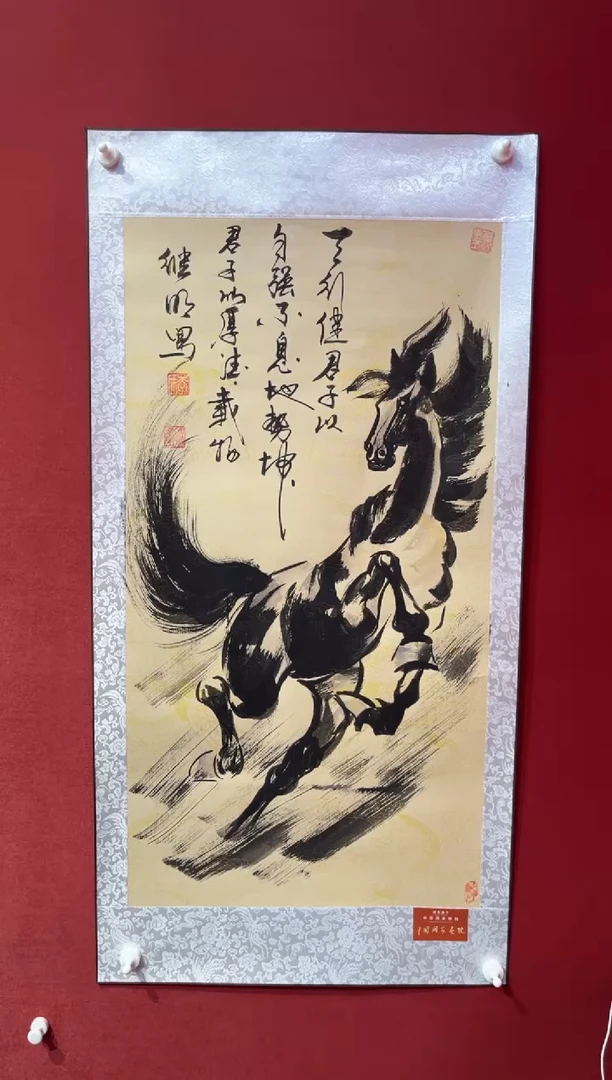 天行健君子以
自强不息地势坤
君子以厚德载物
继明写
中国国家画院